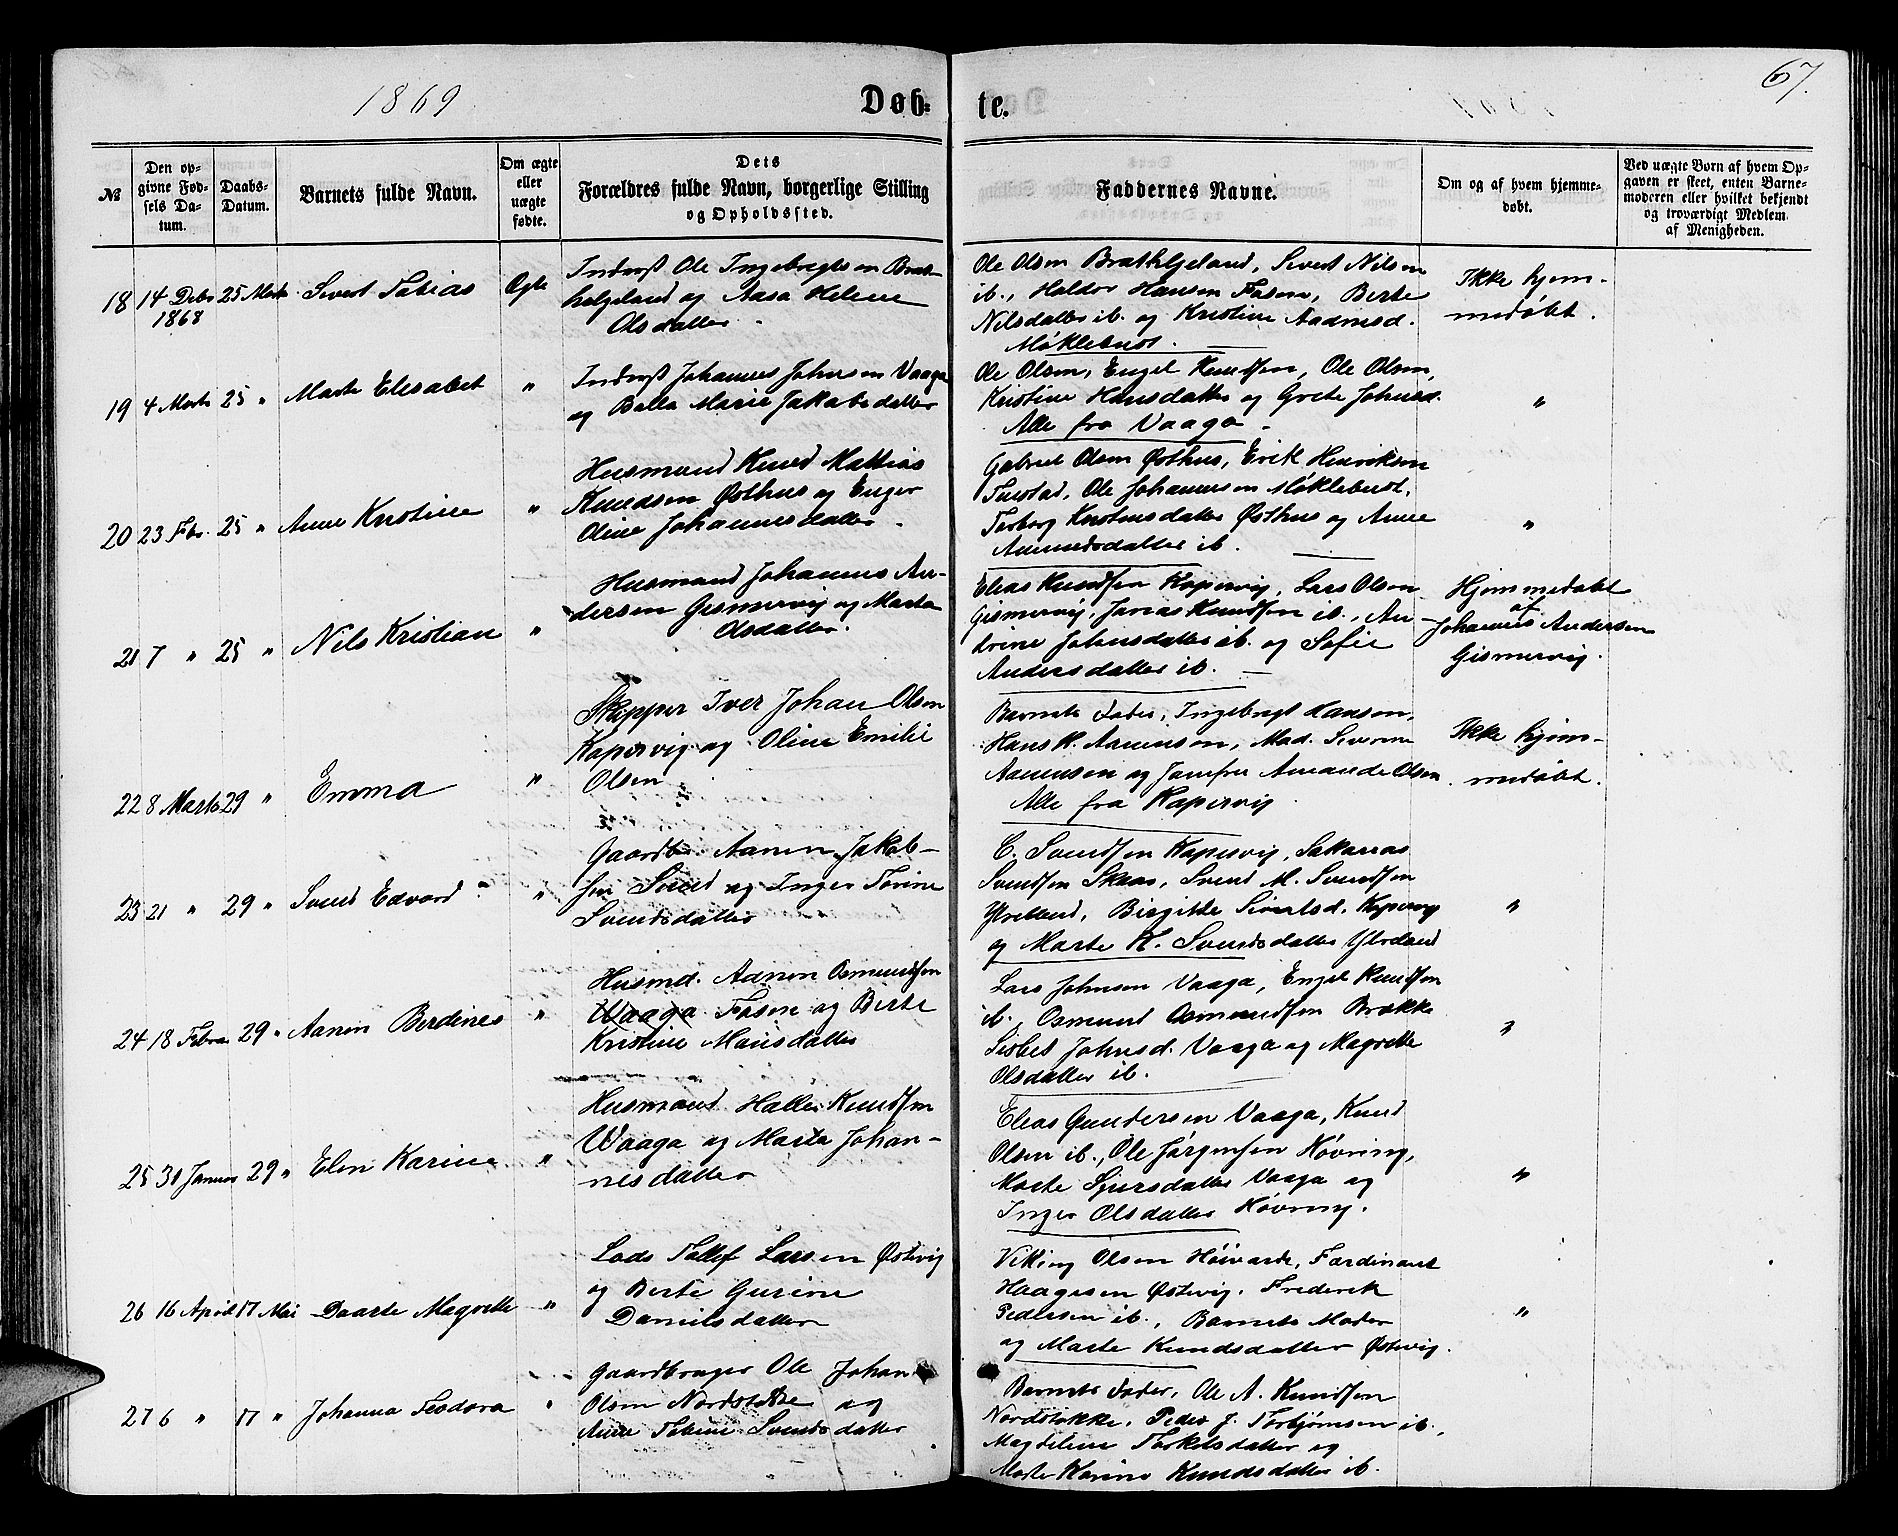 1869
Døb-
te.
67.
№
Den op-
givne Fød-
sels Da-
tum.
Daabs-
Datum.
Barnets fulde Navn.
Om ægte
eller
uægte
fødte.
Dets
Forældres fulde Navn, borgerlige Stilling
og Opholdssted.
Faddernes Navne.
Om og af hvem hjemme-
døbt.
Ved uægte Børn af hvem Op-
gaven er skeet, enten Barne-
moderen eller hvilket bekjendt
og troværdigt Medlem
af Menigheden.
18 14 Debr 25 Marts Sivert Tobias Ægte
1868
Inderst Ole Ingebregtsen Brat-
helgeland og Aasa Helene
Olsdatter.
Ole Olsen Brathelgeland, Sivert Nilsen
ib., Haldor Hansen Fosen, Berte
Nilsdatter ib. og Kristine Aadnesd.
Møklebust.
Ikke hjem-
medøbt.
19 4 Marts 25 " Marte Elisabet "
Inderst Johannes Johnsen Vaaga
og Bolla Marie Jakobsdatter
Ole Olsen, Engel Knudsen, Ole Olsen,
Kristine Hansdatter og Grete Johnsd.
Alle fra Vaaga.
"
20 23 Fbr. 25 " Anne Kristine "
Husmand Knud Mattias
Knudsen Østhus og Inger
Oline Johannesdatter.
Gabriel Olsen Østhus, Erik Henriksen
Ole Johannesen Møklebust,
Torborg Knutsdatter Østhus og Anne
Aamundsdatter ib.
"
21 7 " 25 " Nils Kristian "
Husmand Johannes An-
dersen Gismervig og Marta
Olsdatter.
Elias Knudsen Kopervig, Lars Olsen
Gismervig, Jonas Knudsen ib., An-
drine Johnsdatter ib. og Sofie
Andersdatter ib.
Hjemmedøbt
af
Johannes Andersen
Gismervig.
22 8 Marts 29 " Emma "
Skipper Iver Johan Olsen
Kopervig og Oline Emilie
Olsen
Barnets Fader, Ingebregt Hansen,
Hans H. Aanensen, Mad. Severine
Aanensen og Jomfru Amande Olsen
Alle fra Kopervig
Ikke hjem-
medøbt.
23 21 " 29 " Svend Edvard "
Gaardbr. Aanen Jakob-
sen Sund og Inger Torine
Svendsdatter
C. Svendsen Kopervig, Sakarias
Svendsen Skaar, Svend M. Svendsen
Ytreland, Birgitte Kopervig
og Marte K. Svendsdatter Ytreland
"
24 18 Februar 29 " Aanen Berdines "
Husmd. Adnen Osmundsen
Waaga Fosen og Berte
Kristine Monsdatter
Lars Johnsen Vaaga, Engel Knudsen
ib., Osmund Osmundsen Brække
Sisbet Johnsd. Vaaga og Magrette
Olsdatter ib.
"
25 31 Januar 29 " Elen Karine "
Husmand Halle Knudsen
Waaga og Marta Johan-
nesdatter
Elias Gundersen Vaaga, Knud
Olsen ib., Ole Jørgensen Høvring,
Marte Sjursdatter Vaaga og
Inger Olsdatter Høvring.
"
26 16 April 17 Mai Daarte Magrette "
Lods Tollef Larsen Østevig
og Berte Gurine
Danielsdatter
Viking Olsen Høivarde, Ferdinant
Haagesen Østevig, Frederik
Pedersen ib., Barnets Moder
og Marte Knudsdatter Østevig.
"
27 6 " 17 " Johanna Teodora "
Gaardbruger Ole Johan
Olsen Nordstokke og
Anne Tobine Svendsdatter
Barnets Fader, Ole A. Knudsen
Nordstokke, Peder J. Torbjørnsen ib.,
Magdeline Torkelsdatter og
Marte Karine Knudsdatter ib.